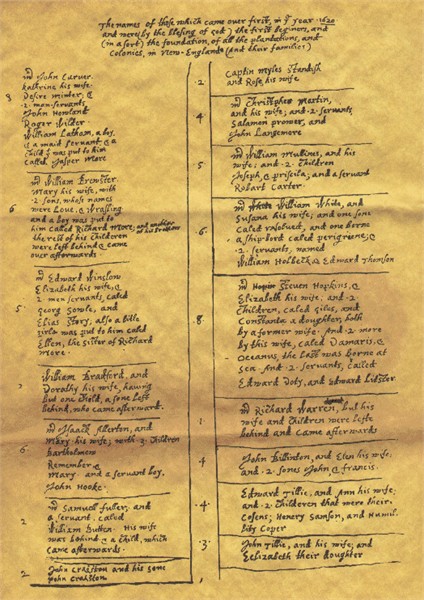 The names of those which came over first, in yᵉ year .1620
and were (by the blesing of god) the first beginers, and
(in a sort) the foundation, of all the plantations, and
Colonies, in New-England (and their families)
8
mʳ John Carver.
kathrine his wife.
Desire minter, &
.2. men-servants
John Howland
Roger Wilder.
William Latham, a boy.
& a maid servant, & a
Child yᵗ was put to him
Called, Jasper More
6
mʳ William Brewster.
Mary his wife, with
.2. sons, whose names
were Love, & Wrasling
and a boy was put to
him Called Richard More; and another
of his Brothers
the rest of his Children
were left behind & came
over afterwards.
5
mʳ Edward Winslow
Elizabeth his wife, &
.2. men servants, caled
georg Sowle, and
Elias Story; also a litle
girle was put to him caled
Ellen, the sister of Richard
More.
2
William Bradford, and
Dorathy his wife, having
but one Child, a sone left
behind, who came afterward.
6
mʳ Isaack Allerton, and
Mary his wife; with .3. Children
Bartholmew
Remember, &
Mary. and a servant boy,
John Hooke.
2
mʳ Samuell fuller; and
a servant, caled
William Butten. His wife
was behind & a Child, which
came afterwards.
2
John Crakston and his sone
John Crakston
.2
Captin Myles Standish
and Rose, his wife
4
mʳ Christpher Martin,
and his wife; and .2. servants,
Salamon prower, and
John Langemore
5
mʳ William Mullines, and his
wife; and .2. Children
Joseph, & priscila; and a servant
Robart Carter.
.6.
mʳ White William White, and
Susana his wife; and one sone
Caled resolved, and one borne
a ship-bord caled perigriene; &
.2. servants, named
William Holbeck, & Edward Thomson
8.
mʳ Steven Hopkins, &
Elizabeth his wife; and .2.
Children, caled giles, and
Constanta a doughter, both
by a former wife. And .2. more
by this wife, caled Damaris, &
Oceanus, the last was borne at
sea. And .2. servants, called
Edward Doty, and Edward Litster
1
mʳ Richard Warren, but his
wife and Children were lefte
behind and came afterwards
.4
John Billinton, and Elen his wife:
and .2. sones John & francis.
.4.
Edward Tillie, and Ann his wife:
and .2. Children that were their
Cosens; Henery Samson, and Humil-
lity Coper
.3
John Tillie, and his wife; and
Eelizabeth their doughter